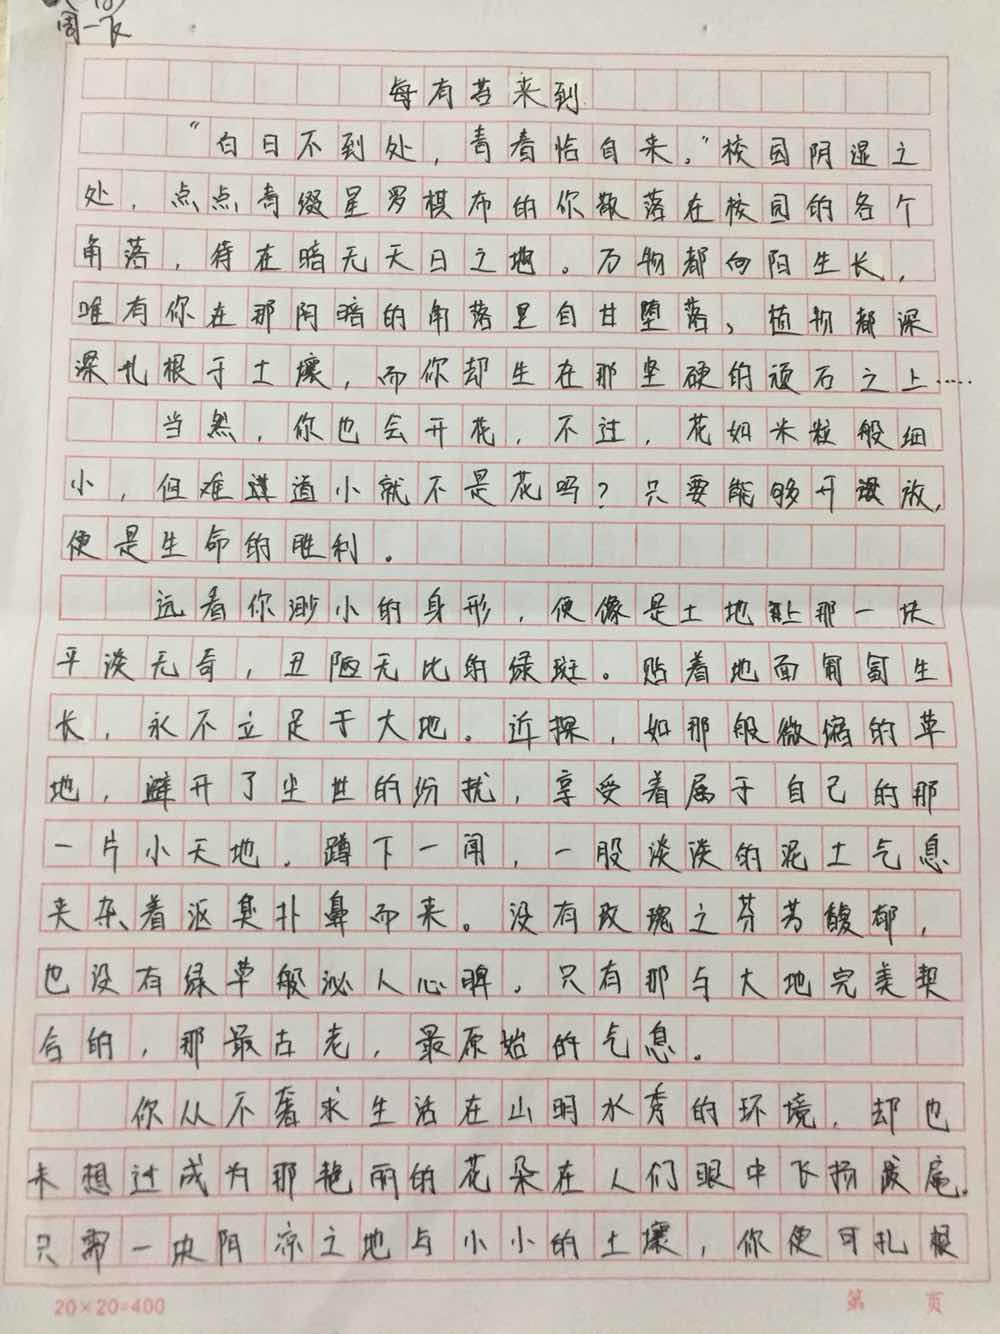 周一飞
每有苔来到
“白日不到处，青春恰自来。”校园阴湿之
处，点点青缀星罗棋布的你散落在校园的各个
角落，待在暗无天日之地。万物都向阳生长，
唯有你在那阴暗的角落里自甘堕落、植物都深
深扎根于土壤，而你却生在那坚硬的顽石之上……
当然，你也会开花，不过，花如米粒般细
小，但难道小就不是花吗？只要能够开放，
便是生命的胜利。
远看你渺小的身形，便像是土地上那一块
平淡无奇，丑陋无比的绿斑。贴着地面匍匐生
长，永不立足于大地。近探，如那般微缩的草
地，避开了尘世的纷扰，享受着属于自己的那
一片小天地。蹲下一闻，一股淡淡的泥土气息
夹杂着沤臭扑鼻而来。没有玫瑰之芬芳馥郁，
也没有绿草般泌人心脾，只有那与大地完美契
合的，那最古老，最原始的气息。
你从不奢求生活在山明水秀的环境，却也
未想过成为那艳丽的花朵在人们眼中飞扬跋扈。
只需一块阴凉之地与小小的土壤，你便可扎根
20×20=400
第 页